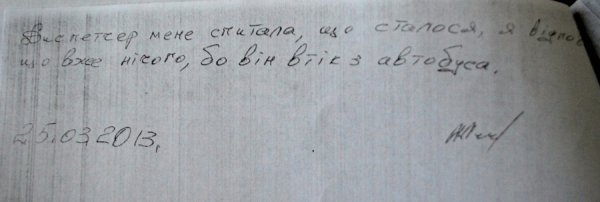 Диспетсер мене спитала, що сталося, я відпов
що вже нічого, бо він втік з автобуса.
25.03.2013.